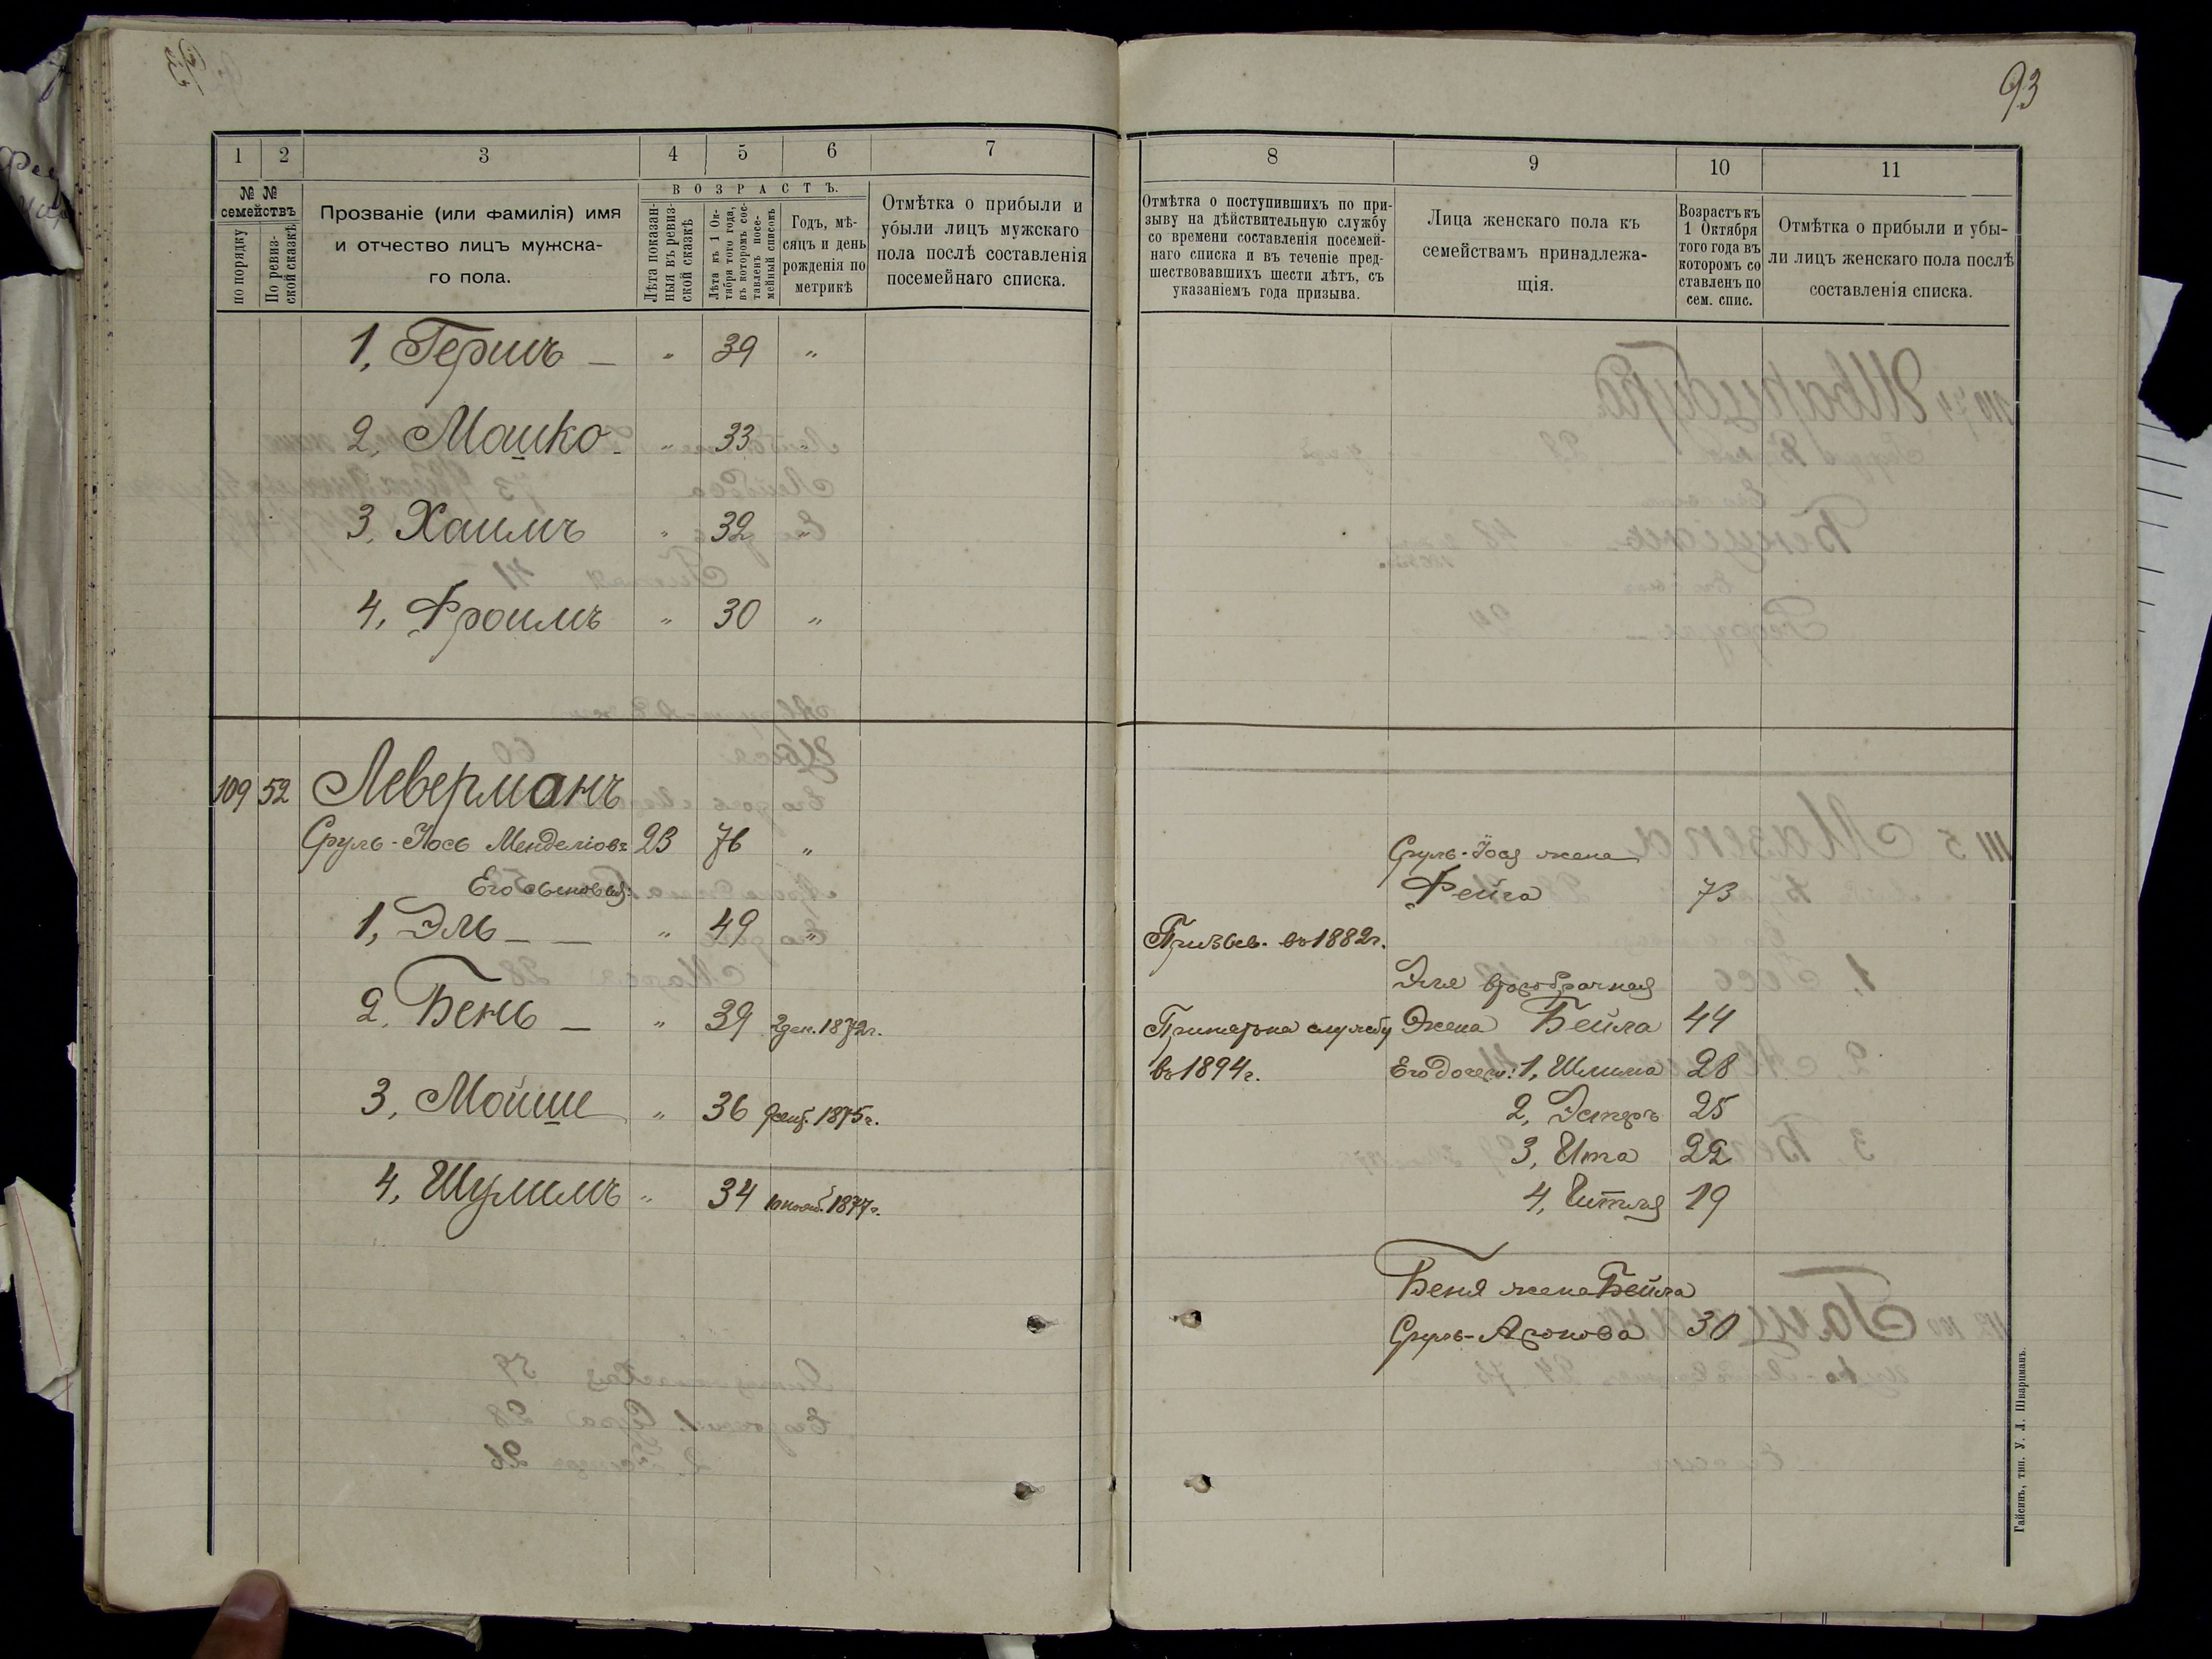 93
1 2 3 4 5 6 7
№ № семействъ
по порядку
По ревиз-
ской сказкѣ
Прозваніе (или фамилія) имя
и отчество лицъ мужска-
го пола.
ВОЗРАСТЪ.
Лѣта показан-
ныя въ ревиз-
ской сказкѣ
Лѣта къ 1 Ок-
тября того года,
въ которомъ сос-
тавленъ посе-
мейный списокъ
Годъ, мѣ-
сяцъ и день
рожденія по
метрикѣ
Отмѣтка о прибыли и
убыли лицъ мужскаго
пола послѣ составленія
посемейнаго списка.
1, Гершъ — " 39 "
2, Мошко — " 33 "
3, Хаимъ " 32 "
4, Фроимъ " 30 "
109 52 Леверманъ
Сруль-Іось Менделіовъ 23 76 "
Его сыновья:
1, Эль — — " 49 "
2, Бень — " 39 2 дек. 1872 г.
3, Мойше " 36 9 сент. 1875 г.
4, Шулимъ " 34 10 нояб. 1877 г.
8 9 10 11
Отмѣтка о поступившихъ по при-
зыву на дѣйствительную службу
со времени составленія посемей-
наго списка и въ теченіе пред-
шествовавшихъ шести лѣтъ, съ
указаніемъ года призыва.
Лица женскаго пола къ
семействамъ принадлежа-
щія.
Возрастъ къ
1 Октября
того года въ
которомъ со
ставленъ по
сем. спис.
Отмѣтка о прибыли и убы-
ли лицъ женскаго пола послѣ
составленія списка.
Сруль-Іося жена
Фейга 73
Призыв. въ 1882 г.
Эля второбрачная
Принятъ на службу жена Бейла 44
въ 1894 г. Его дочери: 1, Шлима 28
2, Эстеръ 25
3, Ита 22
4, Гитля 19
Беня жена Бейла
Сруль-Аронова 30
Гайсинъ, тип. У. Л. Шварцманъ.